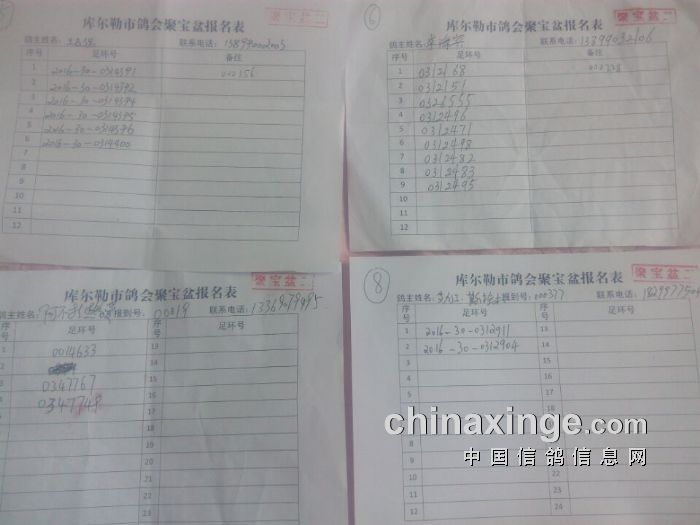 聚宝盆二
库尔勒市鸽会聚宝盆报名表
鸽主姓名:
联系电话:
序号 足环号 备注
1 2016-30-0314391 002356
2 2016-30-0314392
3 2016-30-0314394
4 2016-30-0314395
5 2016-30-0314396
6 2016-30-0314400
7
8
9
10
11
12
6
聚宝盆二
库尔勒市鸽会聚宝盆报名表
鸽主姓名:
联系电话: 13899032106
序号 足环号 备注
1 0312168 002338
2 0312151
3 0326555
4 0312496
5 0312471
6 0312498
7 0312482
8 0312483
9 0312495
10
11
12
聚宝盆二
库尔勒市鸽会聚宝盆报名表
鸽主姓名:
报到号: 00019
联系电话: 13369079495
序号 足环号 序号 足环号
1 0014633 13
2 14
3 0347767 15
4 16
5 17
6 18
7 19
8 20
9 21
22
23
8
聚宝盆二
库尔勒市鸽会聚宝盆报名表
鸽主姓名:
报到号: 000377
联系电话:
序号 足环号 序号 足环号
1 2016-30-0312911 13
2 2016-30-0312904 14
3 15
4 16
5 17
6 18
7
8
9
10
11 23
12 24
chinaxinge.com
中国信鸽信息网